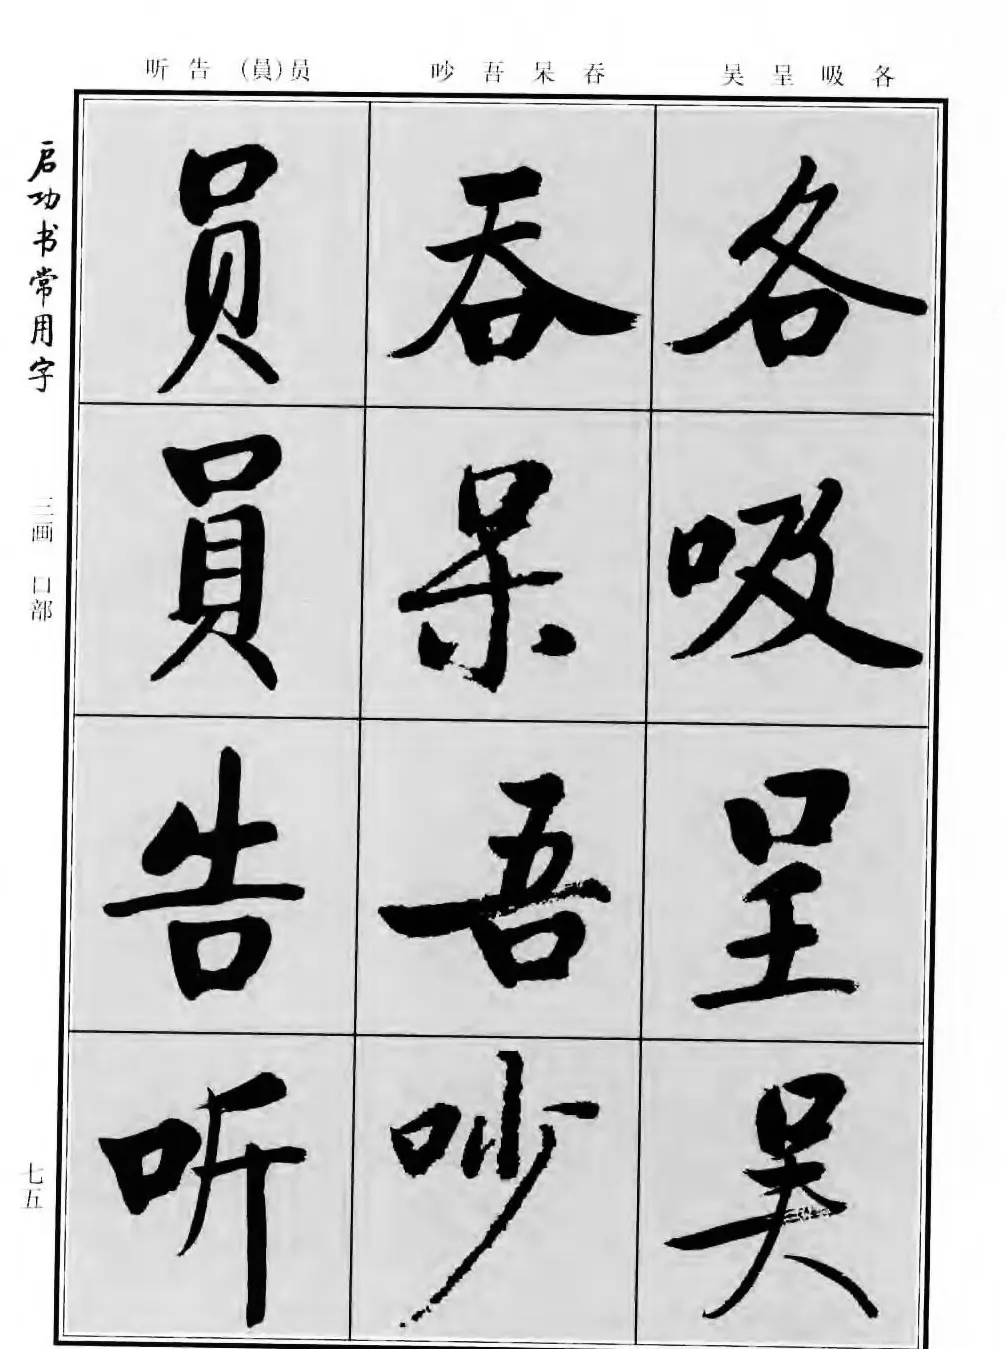 各吸呈吴
吞呆吾吵
员(員)告听
各
吸
呈
吴
吞
呆
吾
吵
员
員
告
听
启功书常用字
三画 口部
七五